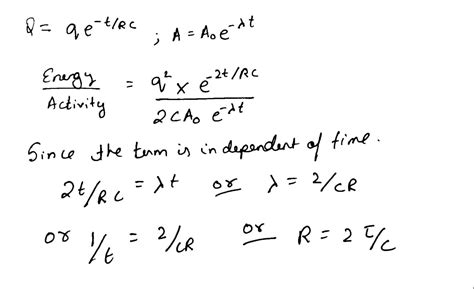 Q = q e^{-t/RC} ; A = A₀ e^{-λt}
Energy/Activity = q² × e^{-2t/RC} / 2CA₀ e^{-λt}
Since the term is independent of time.
2t/RC = λt or λ = 2/CR
or 1/t = 2/CR or R = 2 τ/C